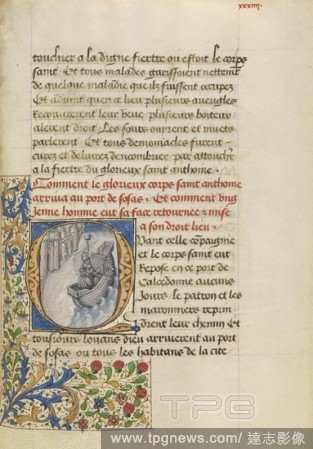 xxxiiij.
touchier a la digne fiertre ou estoit le corps
saint. Et tous malades garissoient nettement
de quelque maladie que ilz fussent occupez
Et advint quen ce lieu plusieurs aveugles
Recouvrerent leur veue, plusieurs boiteux
alerent droit. Les sours ouirent et muets
parlerent Et tous demoniacles furent
curez et delivrez dencombrier par attouchier
a la fiertre du glorieux saint anthoine.
Comment le glorieux corps saint anthoine
arriva au port de sofas. Et comment ung
jeune homme eut sa face retournee et mise
a son droit lieu.
Quant celle compaignie
et le corps saint eut
Repose en ce port de
Calcedonne aucuns
Jours. le patron et les
maronniers reprin
drent leur chemin Et
tousiours louans dieu arriverent au port
de sofas ou tous les habitans de la cite
TPG
www.tpgnews.com/達志影像